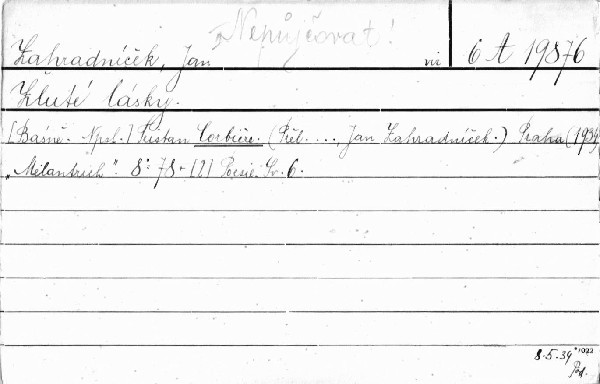 Nepůjčovat!
Zahradníček, Jan viz 6 A 19876
Žluté lásky.
[Básně. Npsl.] Tristan Corbière. (Přel. ..., Jan Zahradníček.) Praha (1939)
„Melantrich". 8° 78 + [2] Poesie. Sv. 6.
8.5.39